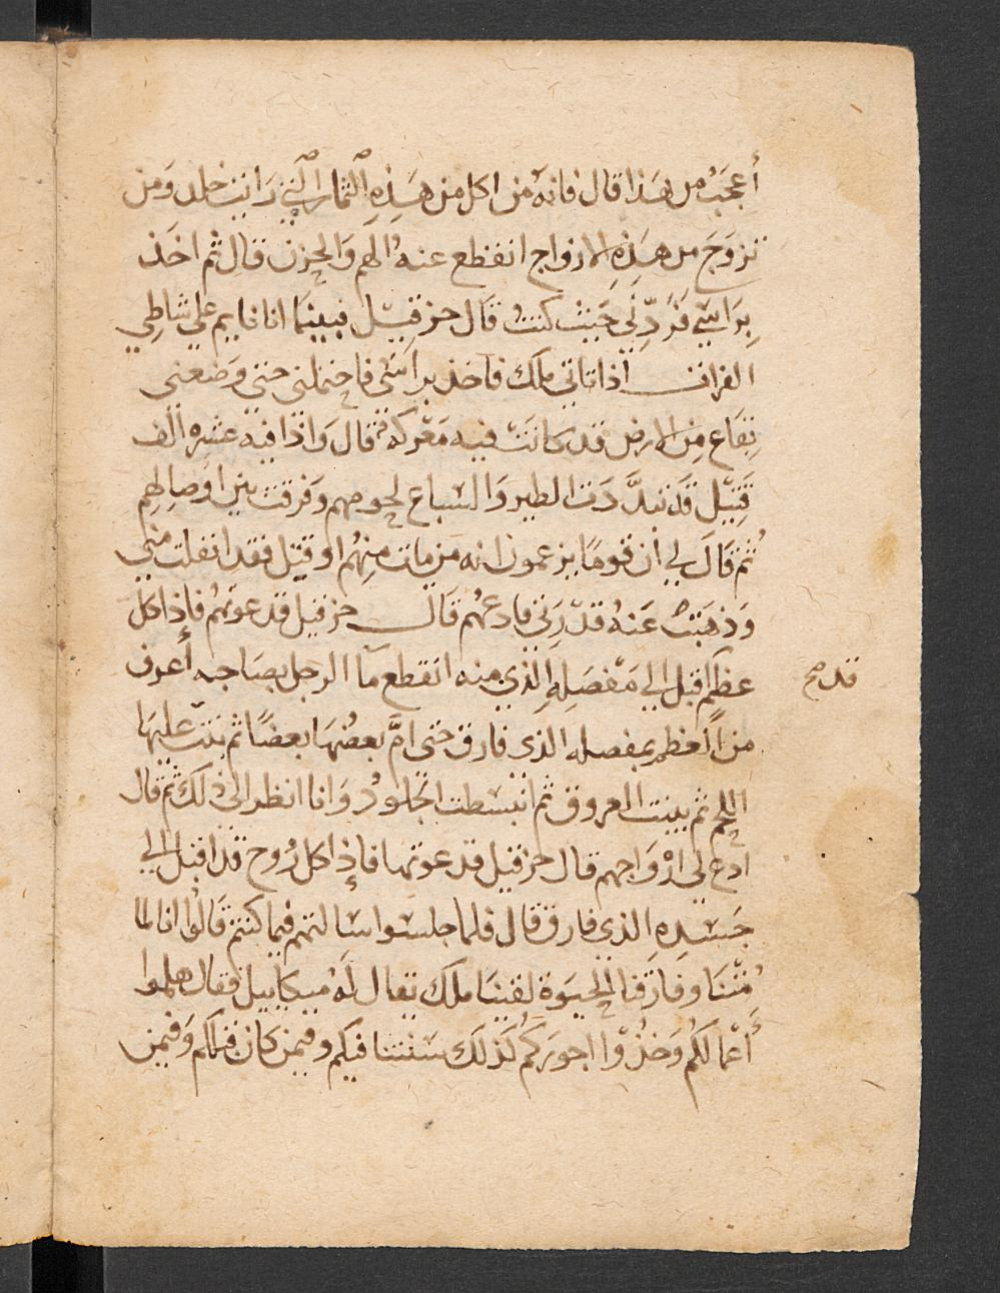 أعجبُ من هَذا قال فانهُ من اكل من هَذِهِ الثمار التي رَايت خلد وَمن
تزوَجَ من هَذِهِ الازواج انقطع عنهُ الهم وَالحزن قال ثم اخَذ
بِرَاسَي فَرَدّنِي حَيثُ كنتُ قال حزقِيل فبينمَا انا نايم علي شاطِي
الفرات اذ اتاني ملك فاخذ براسَي فاحتملني حتي وَضعني
بِقاع مِن الارض قد كانَت فيه مَعْركة قال وَاذا فيه عشره الف
قَتِيْل قَد بَدَّدَت الطير وَالسباع لحومهم وَفرقت بين اوصالِهِم
ثُم قَالَ لي ان قومًا يزعمون انه مَن مات مِنهُم او قتِل فقد انفلت مني
وَذهَبَتْ عَنهُ قدْرَتي فادعهم قَال حزقيل فدعوتهم فإذا كل
عظم اقبل الي مَفْصَلِهِ الذِي منه انقطع ما الرجل بصَاحبه أعرف
قد صح
من العظم بمفصله الذي فارق حتى امَّ بعضُهَا بعضًا ثم نبتَ عليهَا
اللحم ثم نبتت العروق ثم انبسَطت الجلودُ وَانا انظر الى ذلك ثم قال
ادع لي ارْوَاحهم قال حزقيل فدعوتها فإذا كل رُوح قد اقبل الي
جَسَدِهِ الذي فارق قال فلما جلسَوا سَالتهم فيما كنتم قَالوا انا لما
مُتْنَا وفارَقنا الحيوة لقينا ملك يقال لهُ ميكاييل فقال هلموا
أعْمالكُم وَخذُوْا اجورَكُم كَذلكَ سَنتنا فيكم وفيمن كان قبلكم وَفيمن